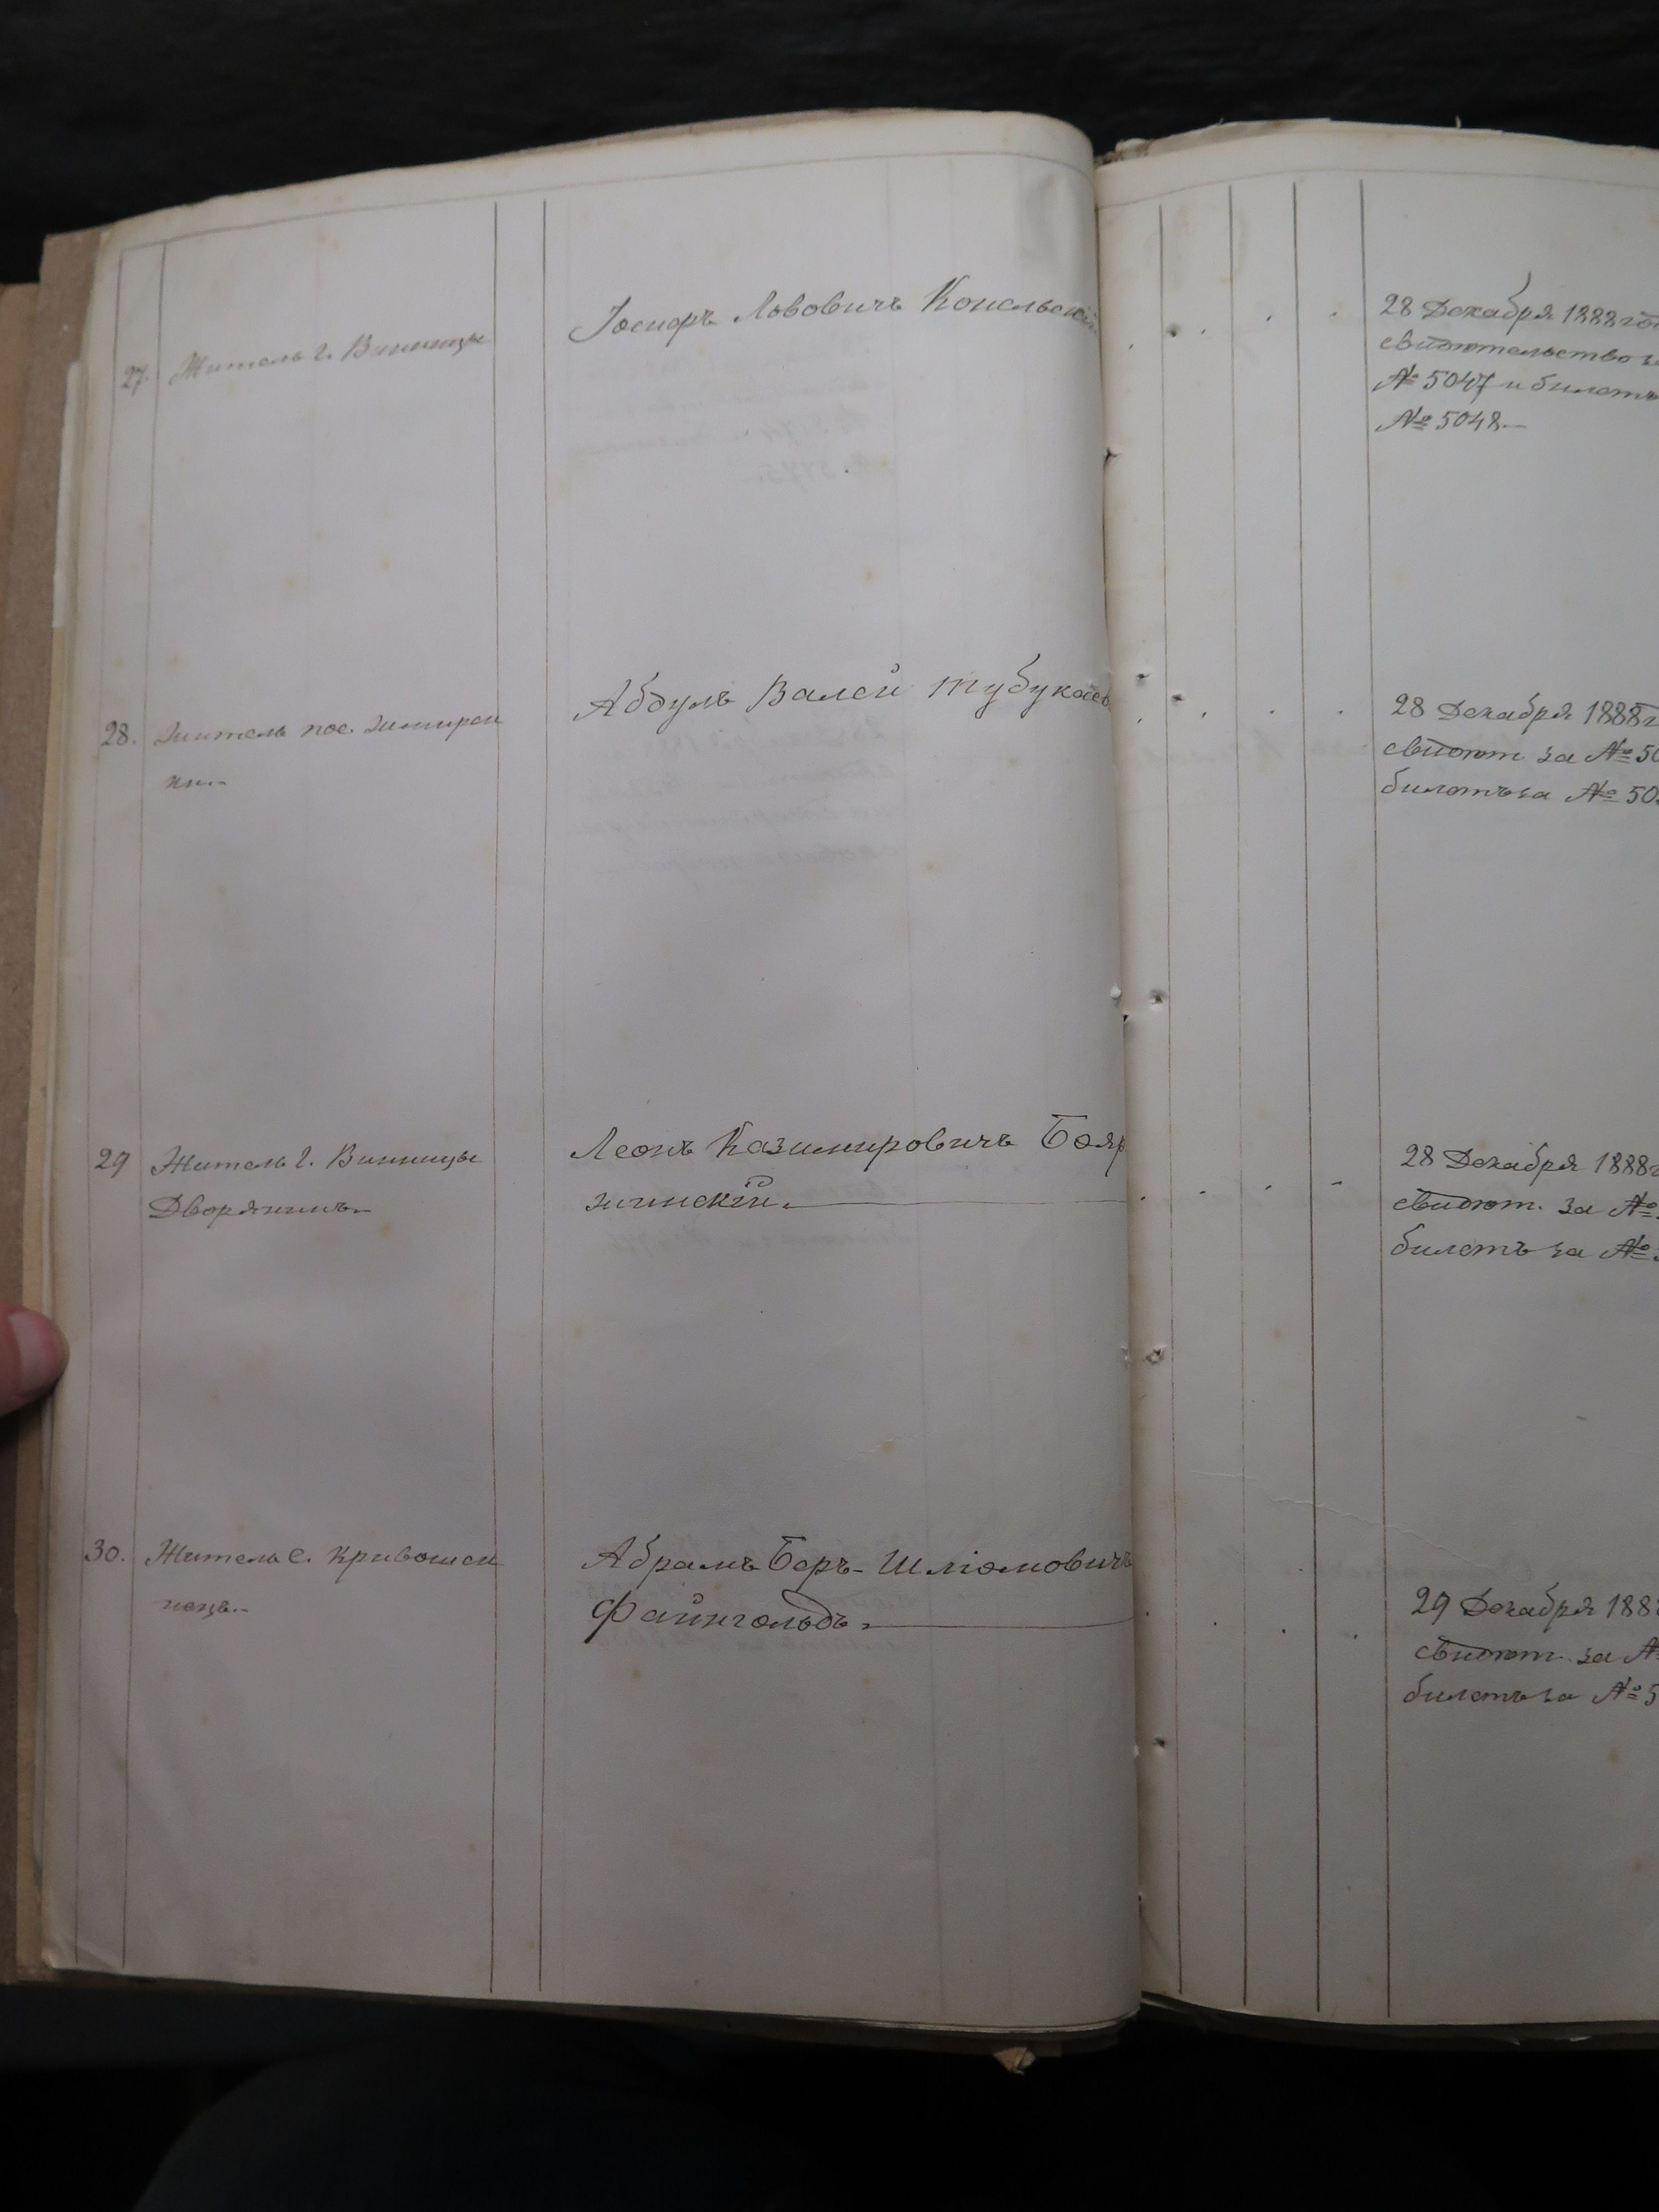 27. Житель г. Винницы
Іосифъ ЛьвовичъКонельскій
28 Декабря 1888 го
свидѣтельство за
№ 5047 и билетъ
№ 5048.—
28. Житель пос. Жмирен
ки.—
Абдулъ Валей Тубукаев
28 Декабря 1888 г
свидѣт. за № 50
билетъ за № 50
29 Житель г. Винницы
Дворянинъ.—
Леонъ Казимировичъ Бояр
жинскій.
28 Декабря 1888 г
свидѣт. за №
билетъ за №
30. Житель с. Кривошеи
нецъ.—
Абрамъ Беръ-Шліомовичъ
Файнгольдъ.
29 Декабря 188
свидѣт. за №
билетъ за № 5